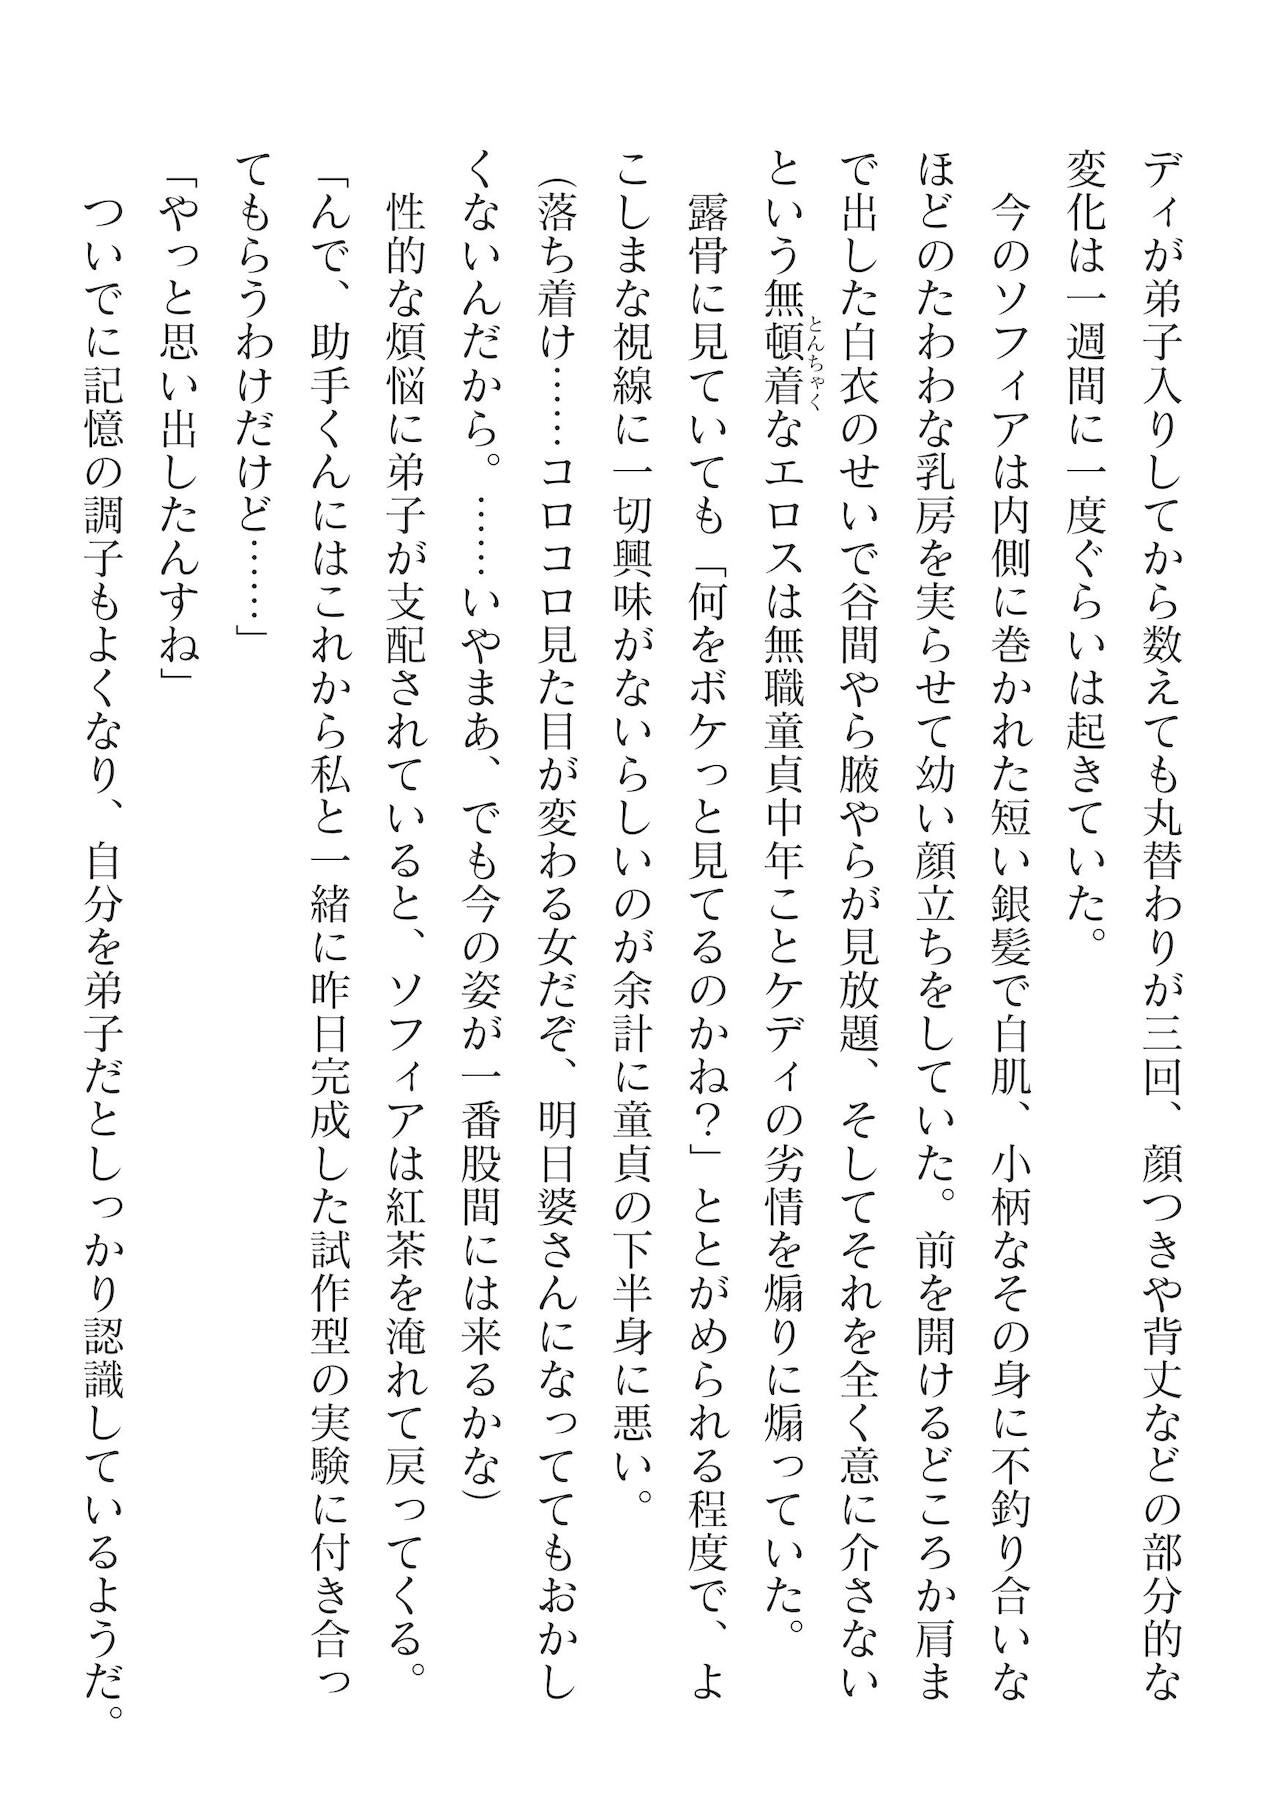 ディが弟子入りしてから数えても丸替わりが三回、顔つきや背丈などの部分的な
変化は一週間に一度ぐらいは起きていた。
今のソフィアは内側に巻かれた短い銀髪で白肌、小柄なその身に不釣り合いな
ほどのたわわな乳房を実らせて幼い顔立ちをしていた。前を開けるどころか肩ま
で出した白衣のせいで谷間やら腋やらが見放題、そしてそれを全く意に介さない
という無頓着なエロスは無職童貞中年ことケディの劣情を煽りに煽っていた。
とんちゃく
露骨に見ていても「何をボケっと見てるのかね？」ととがめられる程度で、よ
こしまな視線に一切興味がないらしいのが余計に童貞の下半身に悪い。
（落ち着け……コロコロ見た目が変わる女だぞ、明日婆さんになっててもおかし
くないんだから。……いやまあ、でも今の姿が一番股間には来るかな）
性的な煩悩に弟子が支配されていると、ソフィアは紅茶を淹れて戻ってくる。
「んで、助手くんにはこれから私と一緒に昨日完成した試作型の実験に付き合っ
てもらうわけだけど……」
「やっと思い出したんすね」
ついでに記憶の調子もよくなり、自分を弟子だとしっかり認識しているようだ。